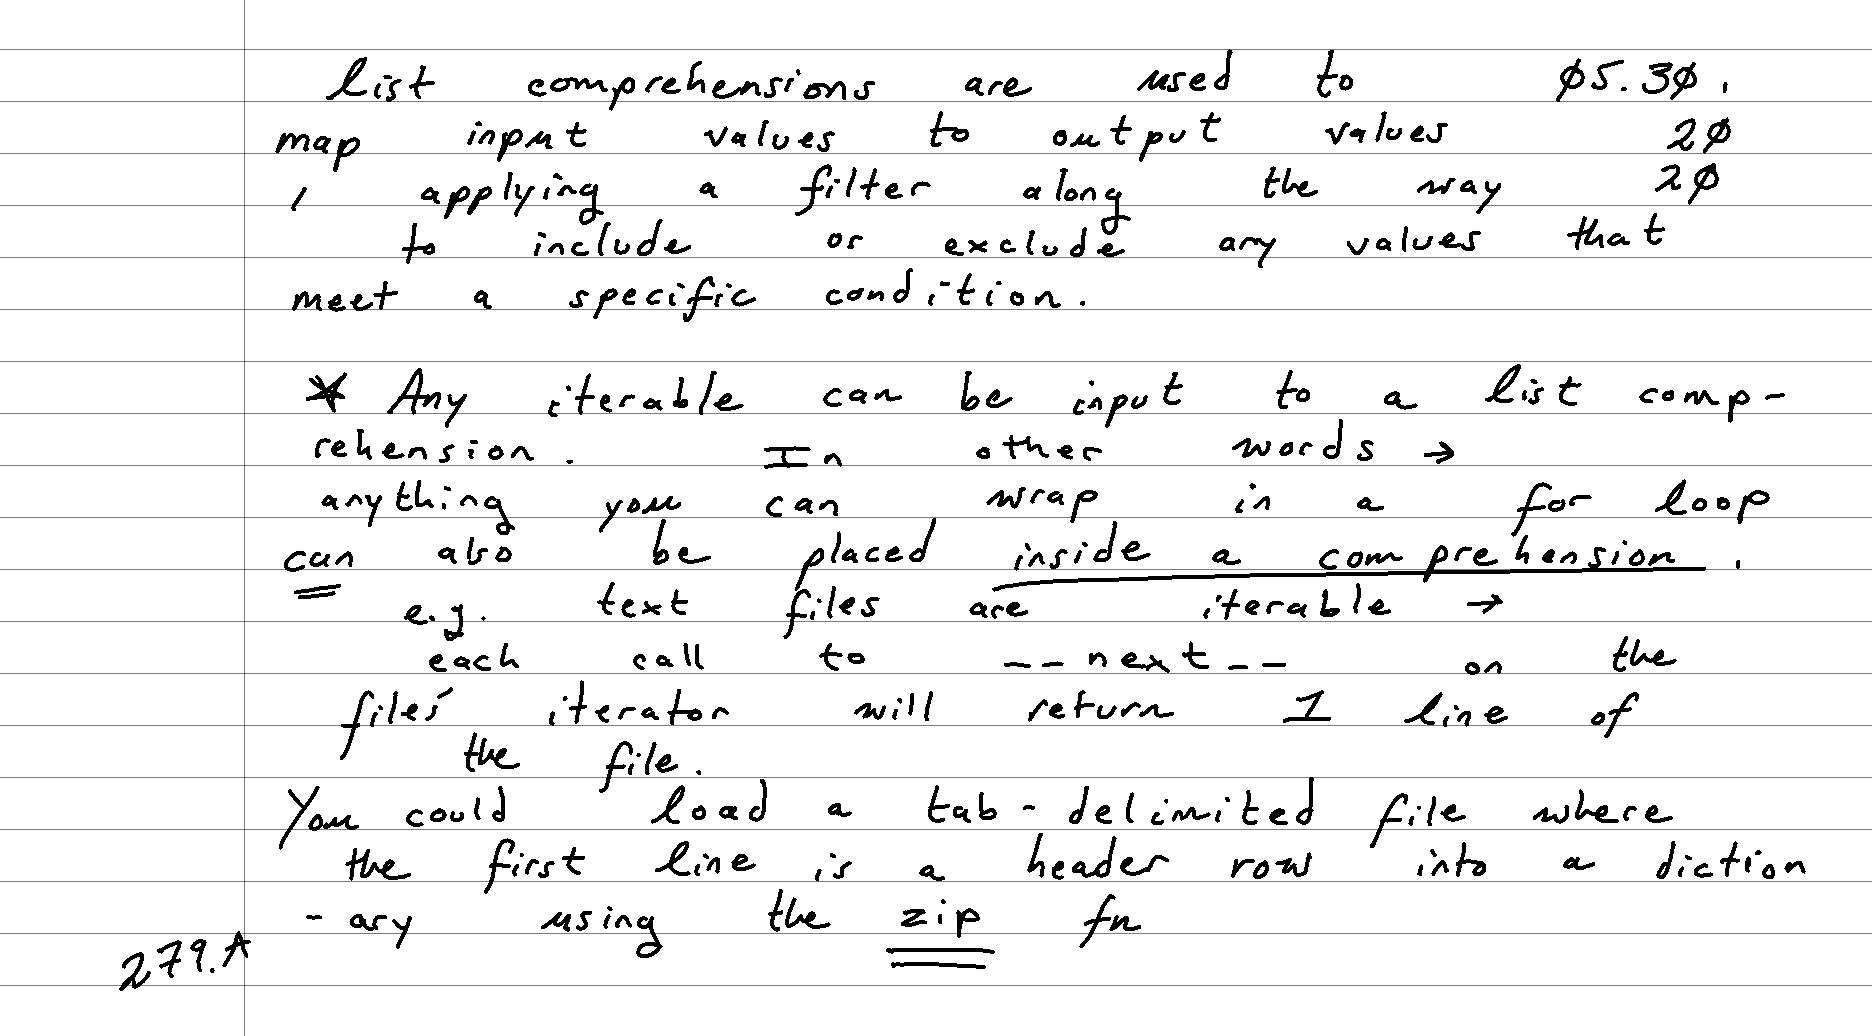 list comprehensions are used to 05.30.
map input values to output values 20
, applying a filter along the way 20
to include or exclude any values that
meet a specific condition.
* Any iterable can be input to a list comp-
rehension. In other words →
anything you can wrap in a for loop
can also be placed inside a comprehension.
e.g. text files are iterable →
each call to __next__ on the
files' iterator will return 1 line of
the file.
You could load a tab-delimited file where
the first line is a header row into a diction
-ary using the zip fn
279.A